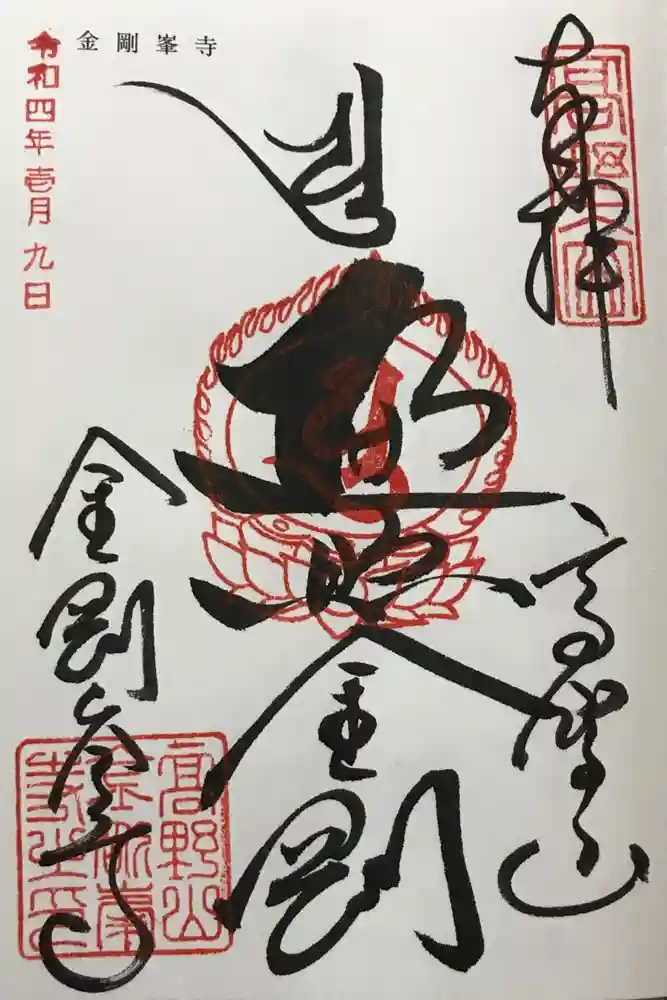 奉拝
高野山
遍照金剛
金剛峯寺
金剛峯寺
令和四年壱月九日
高野山
金剛峯
寺之印